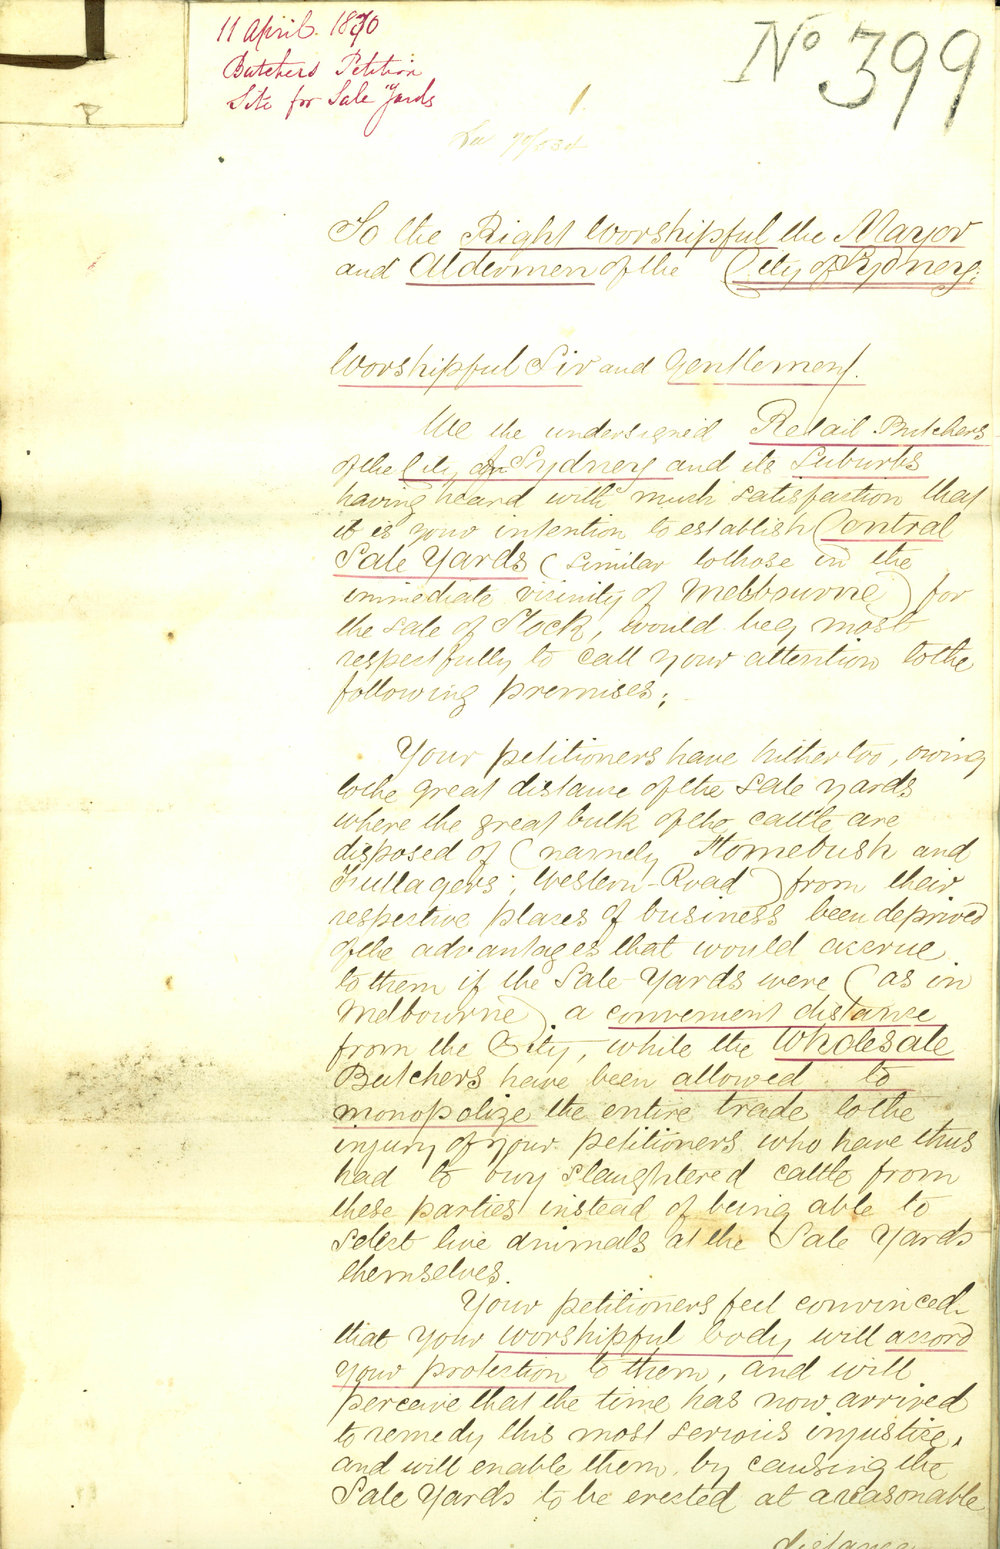 11 April. 1870
Butchers Petition
Site for Sale Yards
No 399
To the Right Worshipful the Mayor
and Aldermen of the City of Sydney;
Worshipful Sir and Gentlemen.
We the undersigned Retail Butchers
of the City of Sydney and its Suburbs
having heard with much satisfaction that
it is your intention to establish Central
Sale Yards (similar to those in the
immediate vicinity of Melbourne) for
the sale of Stock, would beg most
respectfully to call your attention to the
following premises;
Your petitioners have hither too, owing
to the great distance of the sale yards
where the great bulk of the cattle are
disposed of (namely Homebush and
Fullagers; Western-Road) from their
respective places of business been deprived
of the advantages that would accrue
to them if the Sale Yards were (as in
Melbourne) a convenient distance
from the City, while the Wholesale
Butchers have been allowed to
monopolize the entire trade to the
injury of your petitioners who have thus
had to buy slaughtered cattle from
these parties instead of being able to
select live animals at the Sale Yards
themselves.
Your petitioners feel convinced
that your worshipful body will accord
your protection to them, and will
perceive that the time has now arrived
to remedy this most serious injustice,
and will enable them, by causing the
Sale Yards to be erected at a reasonable
distance